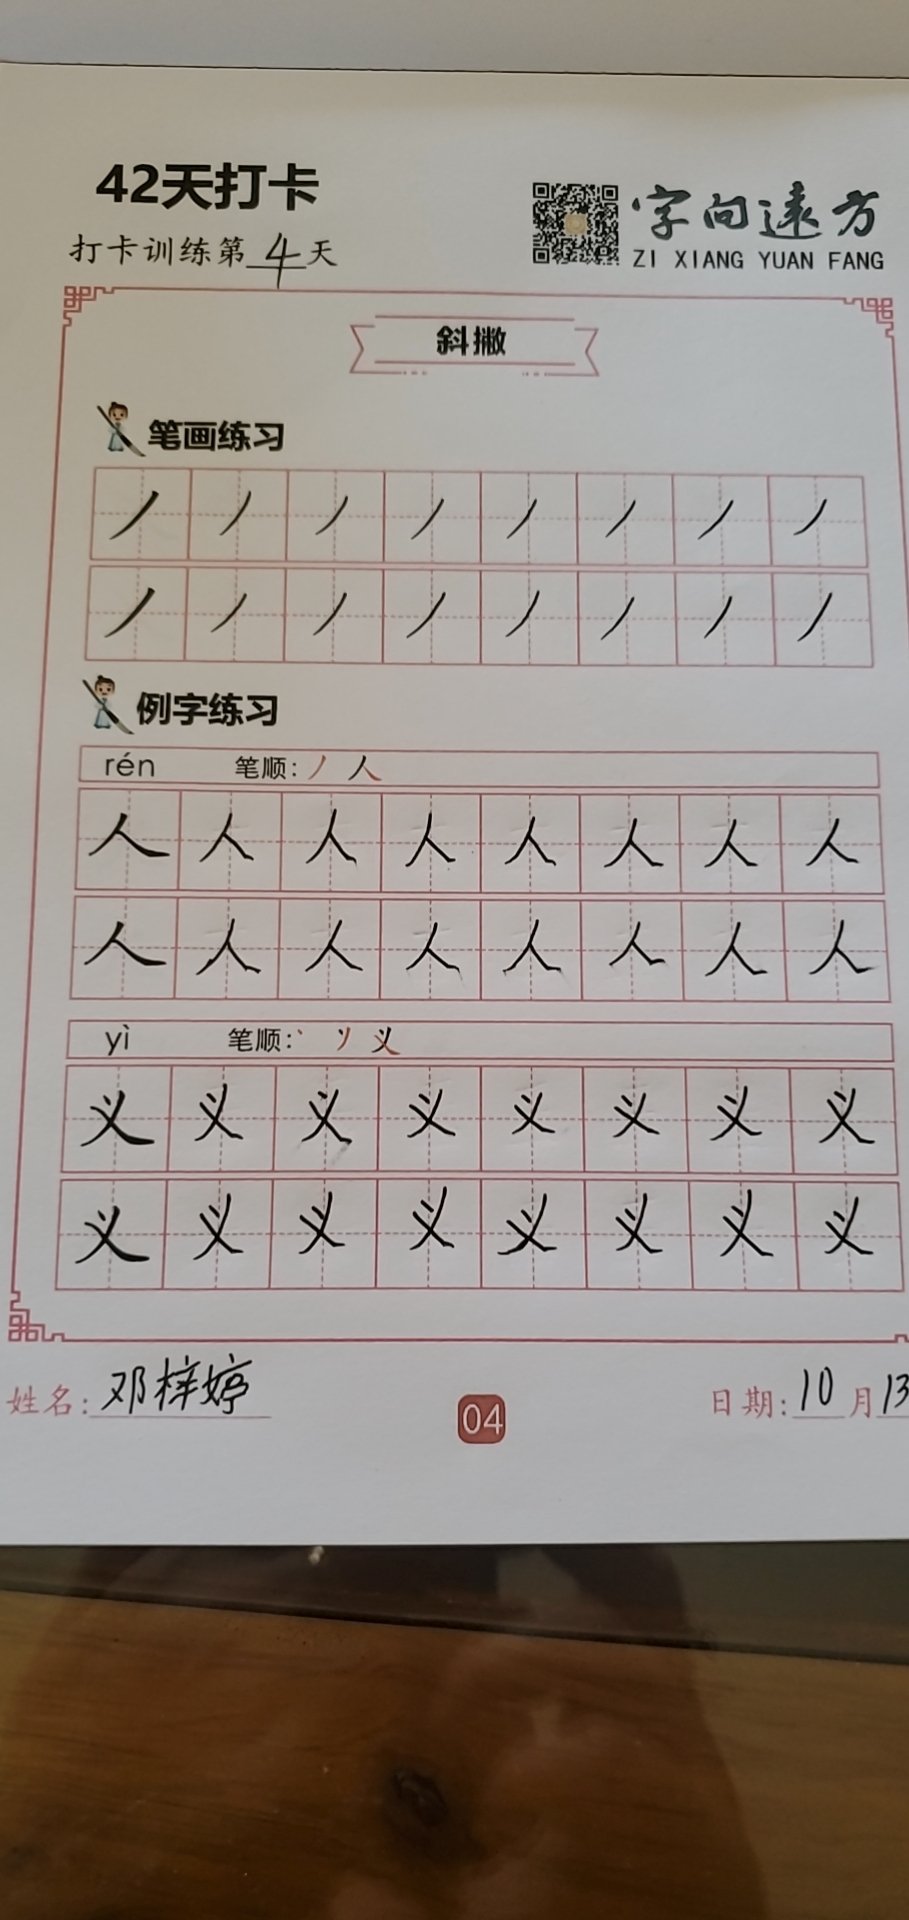 42天打卡
打卡训练第4天
字向遠方
ZI XIANG YUAN FANG
斜撇
笔画练习
丿丿丿丿丿丿丿丿
丿丿丿丿丿丿丿丿
例字练习
rén 笔顺:丿 人
人人人人人人人人
人人人人人人人人
yì 笔顺:丶 丷 义
义义义义义义义义
义义义义义义义义
姓名:邓梓婷
04
日期:10月13